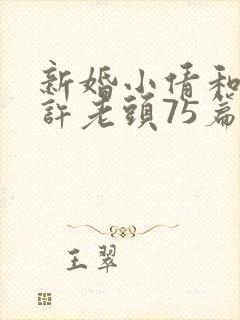 新婚小倩和
許老頭75篇
王翠